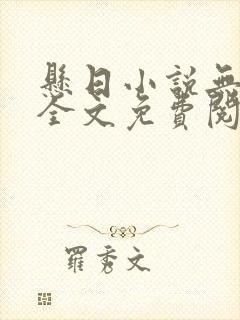 懸日小說無
全文免費閱
羅秀文